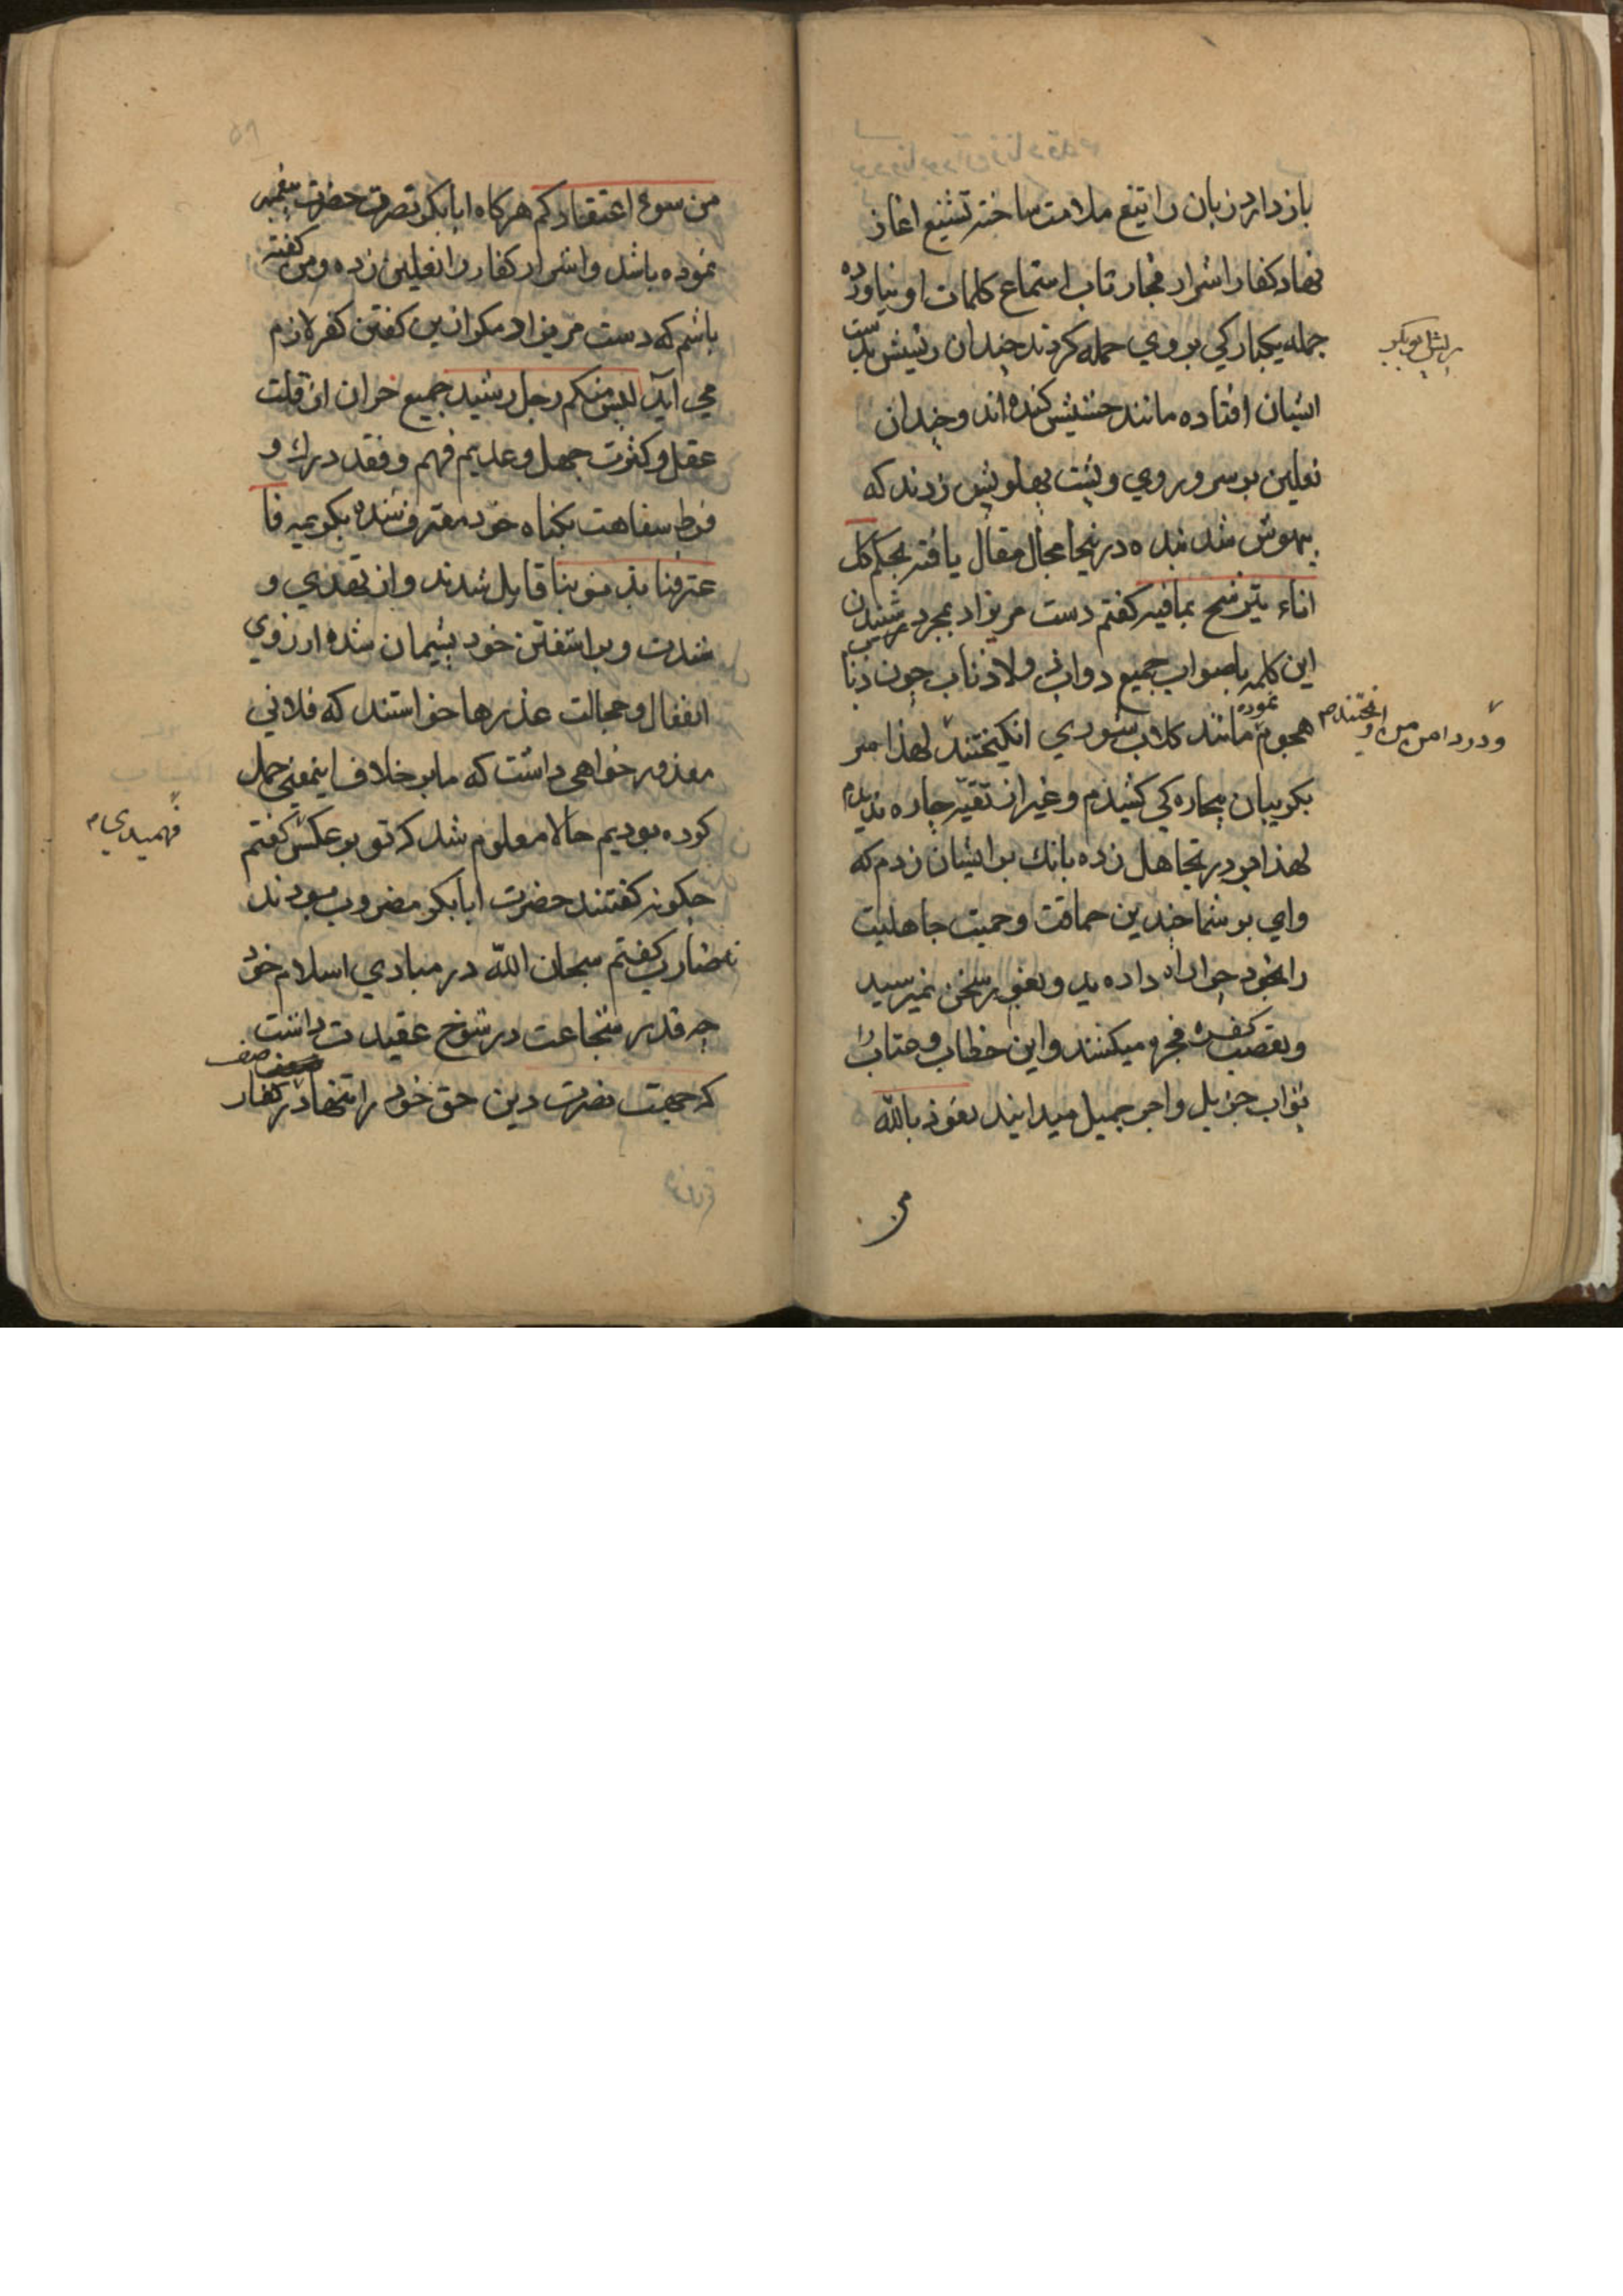 باز دارد زبان را بتیغ ملامت ساخته تشنیع اغاز
نهاد کفار اشرار فجار تاب استماع کلمات او نیاورده
جمله یکبارکي بر وي حمله کردند چندان ریشش بدست
ریش ابوبکر
ایشان افتاده مانند حشیش کنده اند و چندان
نعلین بر سر و روي و پشت پهلویش زدند که
بیهوش شد بنده درینجا مجال مقال یافته بحکم کل
اناء یترشح بمافیه کفتم دست مریزاد بمجرد شنیدن
این کلمه باصواب جمیع دواب ولاذناب چون ذباب
هجوم نموده مانند کلاب شوري انکیختند لهذا سر
و در دامن من اویختند
بکریبان بیچاره کي کشیدم و غیر از تقیه چاره ندیدم
لهذا بر در تجاهل زده بانك بر ایشان زدم که
واي بر شما چندین حماقت و حمیت جاهلیت
را بخود چرا راه داده ید و بغور سخن نمیرسید
و تعصب کفره فجره میکنند و این خطاب و عتاب را
ثواب جزیل و اجر جمیل میدانید نعوذ بالله
من
من سوء اعتقادکم هرکاه ابابکر نصرت حضرت پیغمبر
نموده باشد و اشرار کفار را نعلین زده و من کفته
باشم که دست مریزاد مکر ازین کفتن کفر لازم
مي اید الیس منکم رجل رشید جمیع خران از قلت
عقل و کثرت جهل و عدیم فهم و فقد درك و
فرط سفاهت بکناه خود معترف شده بکریمه فا
عترفنا بذنوبنا قایل شدند و از تعدي و
شدت و بر اشفتن خود پشیمان شده از روي
انفعال و خجالت عذرها خواستند که فلاني
معذور خواهي داشت که ما بر خلاف اینمعني حمل
کرده بودیم حالا معلوم شد که تو بر عکس کفتم
فهمیدي
چکونه کفتند حضرت ابابکر مضروب بودند
نه ضارب کفتم سبحان الله در مبادي اسلام خود
چه قدر شجاعت و رسوخ عقیدت داشت
که جهت نصرت دین حق خود را تنها در صف کفار